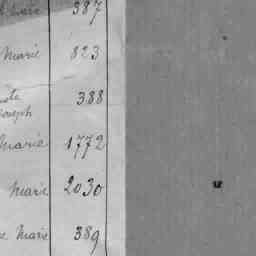 387
Marie 823
388
Joseph
Maria 1772
Marie 2030
Marie 389